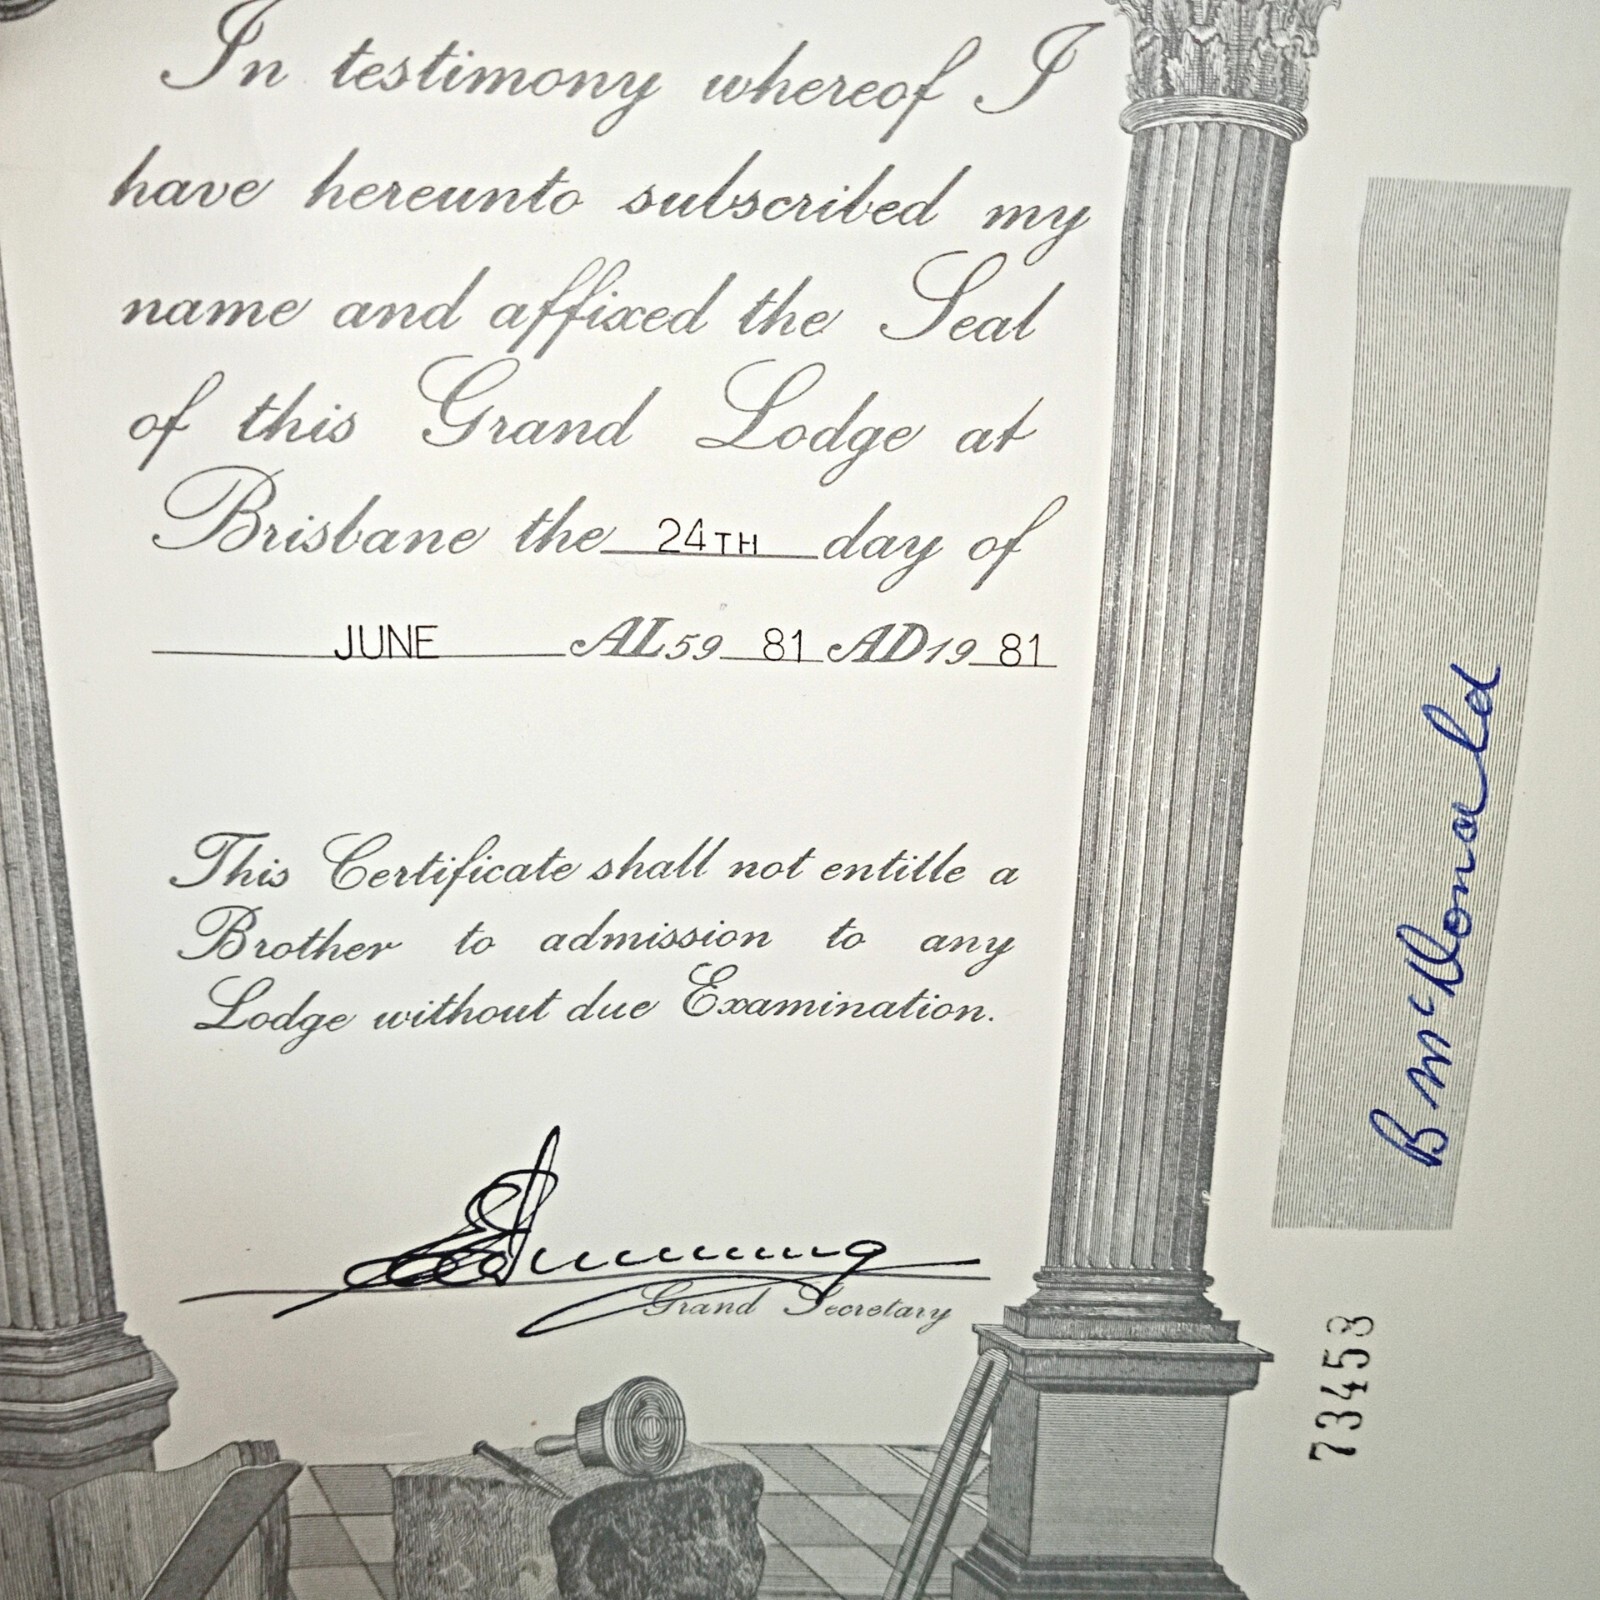 In testimony whereof I
have hereunto subscribed my
name and affixed the Seal
of this Grand Lodge at
Brisbane the 24TH day of
JUNE AL 59 81 AD 19 81
This Certificate shall not entitle a
Brother to admission to any
Lodge without due Examination.
Grand Secretary
B McDonald
73453